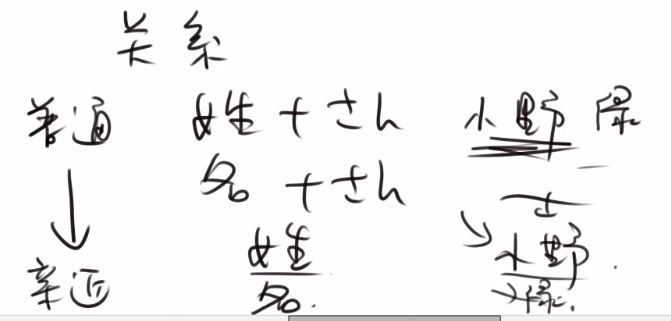 关系
普通 姓+さん 小野 绿
名+さん
亲近 姓 小野
名. →绿.